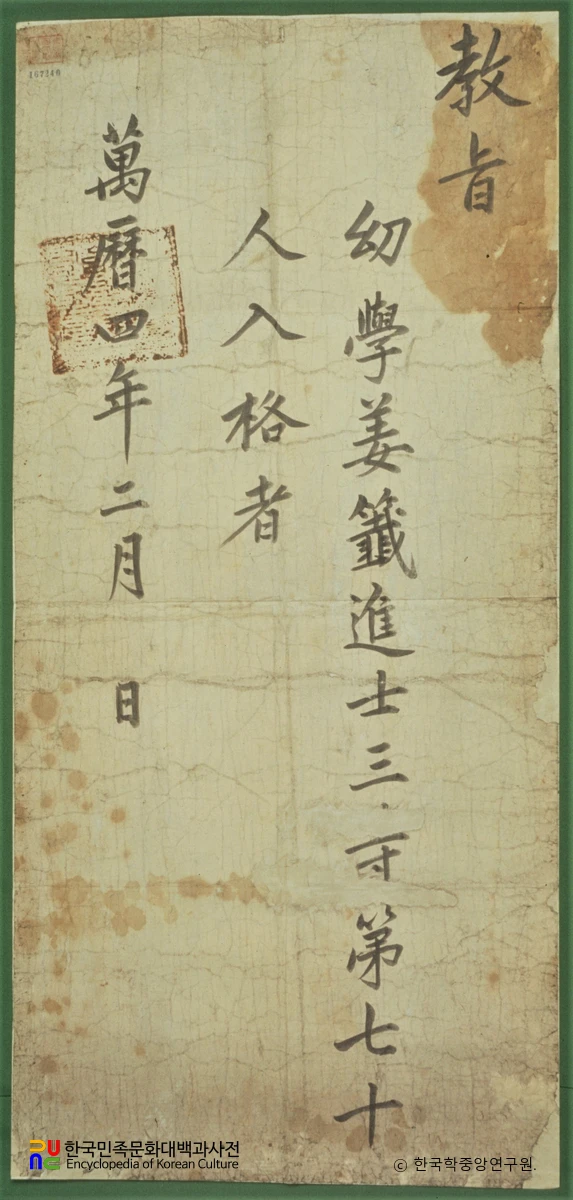 教旨
幼學姜籤進士三等第七十
人入格者
萬曆四年二月 日
한국민족문화대백과사전
Encyclopedia of Korean Culture
© 한국학중앙연구원.